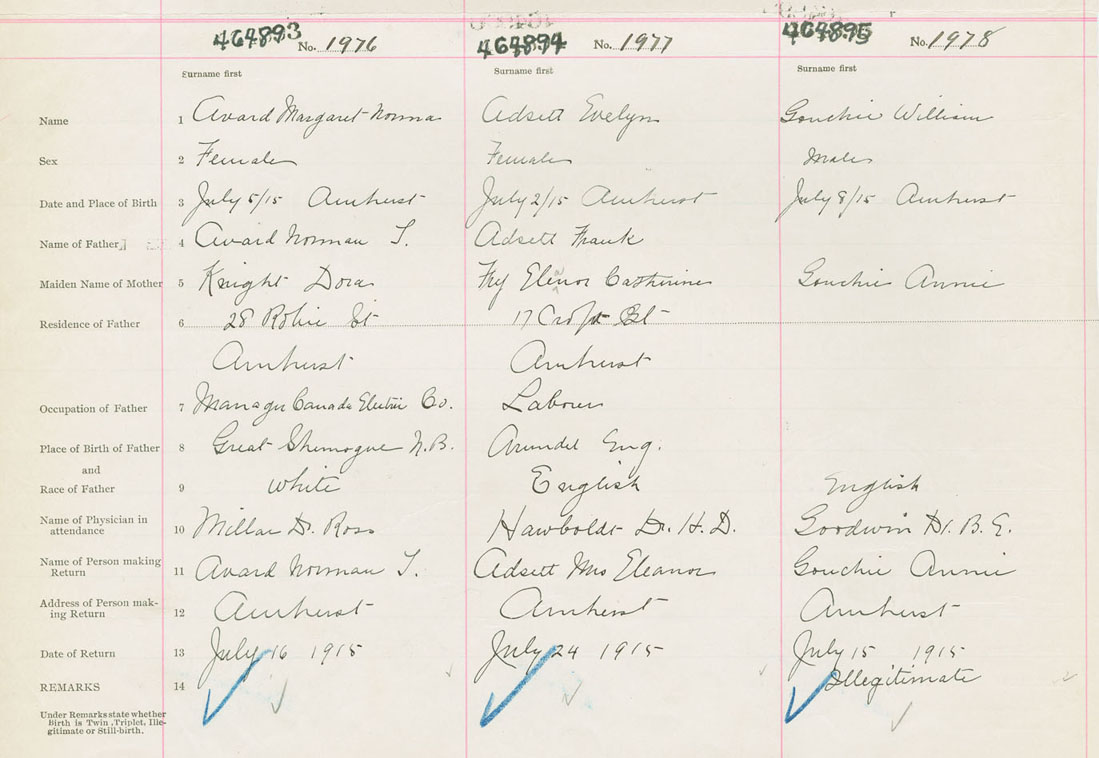 464893 No. 1976 464894 No. 1977 464895 No. 1978
Surname first Surname first Surname first
Name 1 Avard Margaret Norma Adsett Evelyn Gouchie William
Sex 2 Female Female Male
Date and Place of Birth 3 July 5/15 Amherst July 2/15 Amherst July 8/15 Amherst
Name of Father 4 Avard Norman T. Adsett Frank
Maiden Name of Mother 5 Knight Dora Fry Elenor Catherine Gouchie Annie
Residence of Father 6 28 Robie St 17 Croft St
Amherst Amherst
Occupation of Father 7 Manager Canada Electric Co. Labourer
Place of Birth of Father 8 Great Shemogue N.B. Arundel Eng.
and
Race of Father 9 White English English
Name of Physician in
attendance 10 Millar Dr. Ross Hawboldt Dr. H. D. Goodwin Dr. B. E.
Name of Person making
Return 11 Avard Norman T. Adsett Mrs Eleanor Gouchie Annie
Address of Person mak-
ing Return 12 Amherst Amherst Amherst
Date of Return 13 July 16 1915 July 24 1915 July 15 1915
REMARKS 14 Illegitimate
Under Remarks state whether
Birth is Twin, Triplet, Ille-
gitimate or Still-birth.